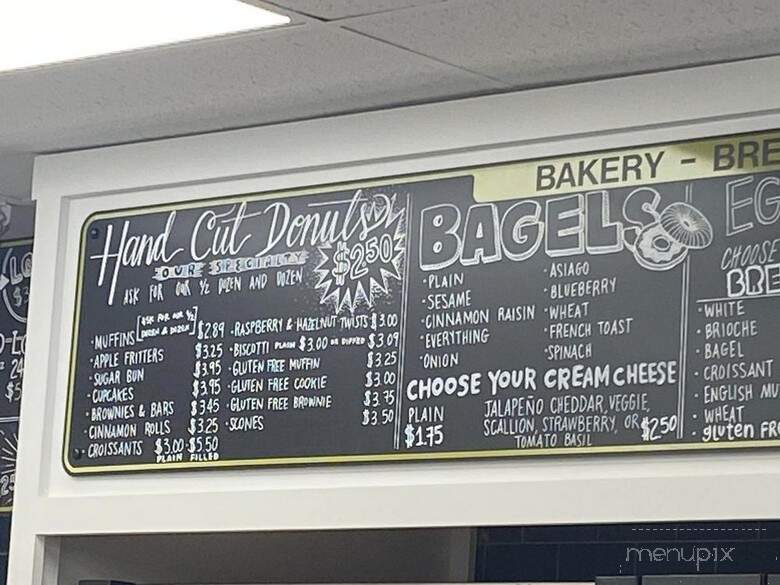 BAKERY - BRE
Hand Cut Donuts
$2.50
OUR SPECIALTY
ASK FOR OUR ½ DOZEN AND DOZEN
·MUFFINS [ASK FOR OUR ½ DOZEN & DOZEN] $2.89
·APPLE FRITTERS $3.25
·SUGAR BUN $3.95
·CUPCAKES $3.95
·BROWNIES & BARS $3.45
·CINNAMON ROLLS $3.25
·CROISSANTS $3.00 $5.50
PLAIN FILLED
·RASPBERRY & HAZELNUT TWISTS $3.00
·BISCOTTI PLAIN $3.00 OR DIPPED $3.09
·GLUTEN FREE MUFFIN $3.25
·GLUTEN FREE COOKIE $3.00
·GLUTEN FREE BROWNIE $3.75
·SCONES $3.50
BAGELS
·PLAIN
·SESAME
·CINNAMON RAISIN
·EVERYTHING
·ONION
·ASIAGO
·BLUEBERRY
·WHEAT
·FRENCH TOAST
·SPINACH
CHOOSE YOUR CREAM CHEESE
PLAIN
$1.75
JALAPEÑO CHEDDAR, VEGGIE,
SCALLION, STRAWBERRY, OR
TOMATO BASIL
$2.50
EG
CHOOSE
BRE
·WHITE
·BRIOCHE
·BAGEL
·CROISSANT
·ENGLISH MU
·WHEAT
·gluten FR
menupix